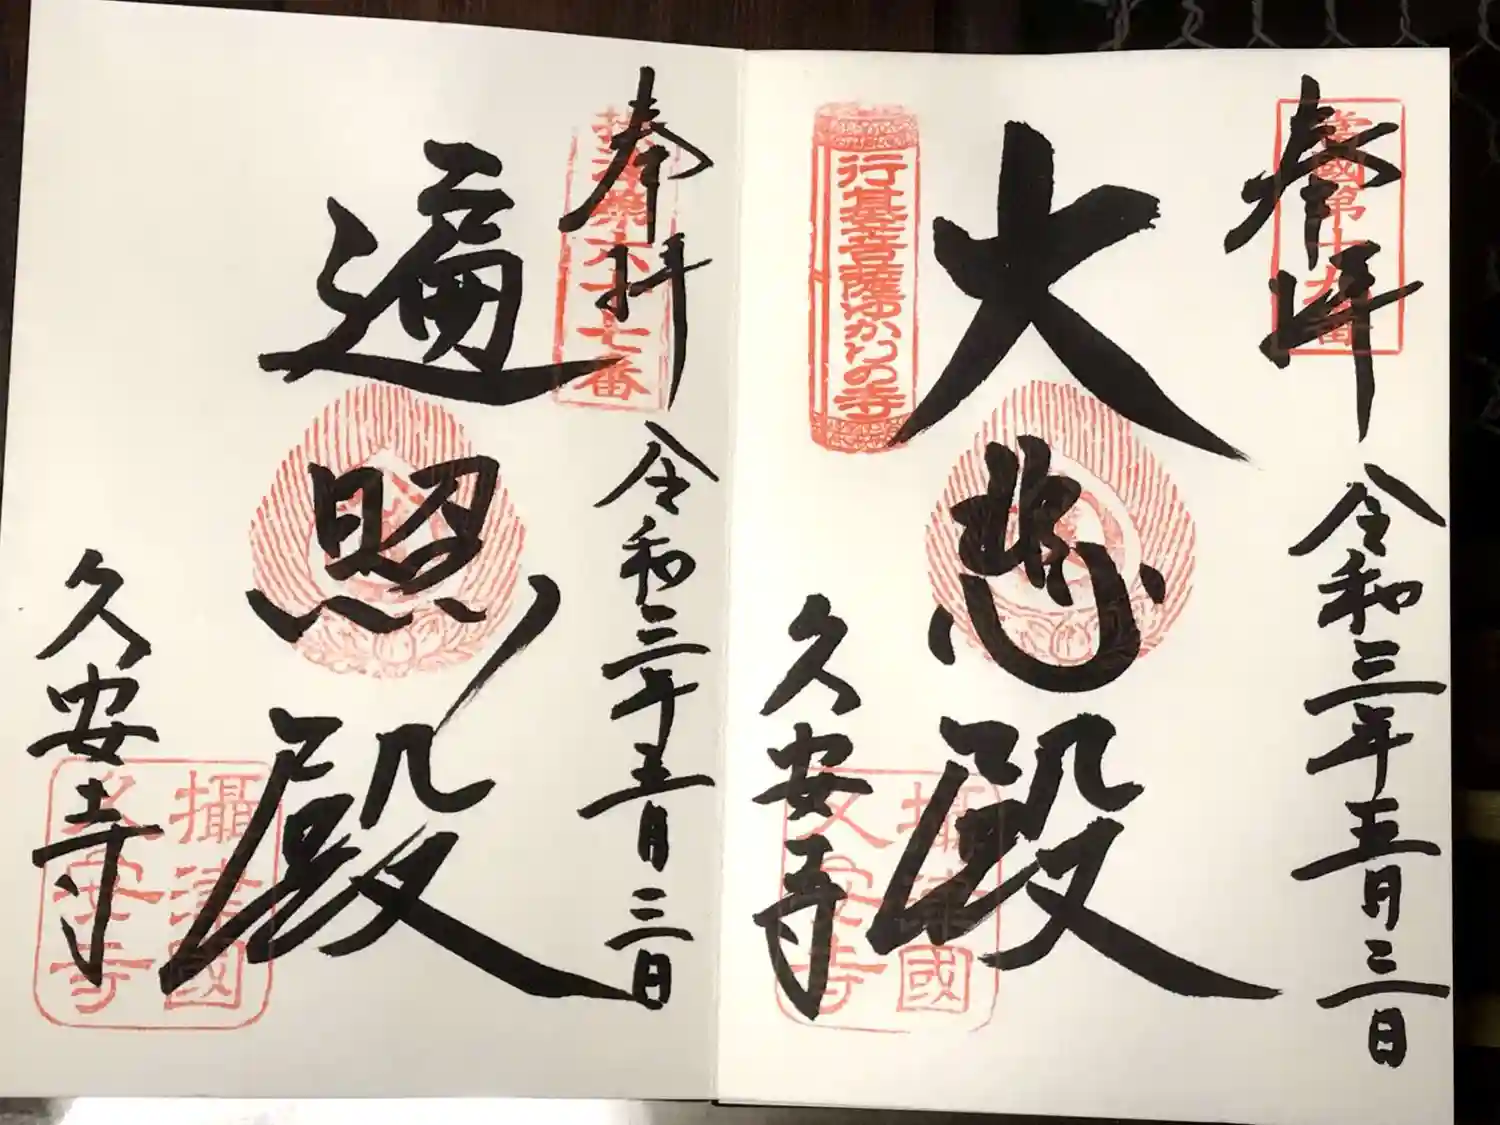 奉拝
當國第十九番
令和三年五月三日
大悲殿
行基菩薩ゆかりの寺
久安寺
攝津國
久安寺
奉拝
摂津第六十七番
令和三年五月三日
遍照殿
久安寺
攝津國
久安寺